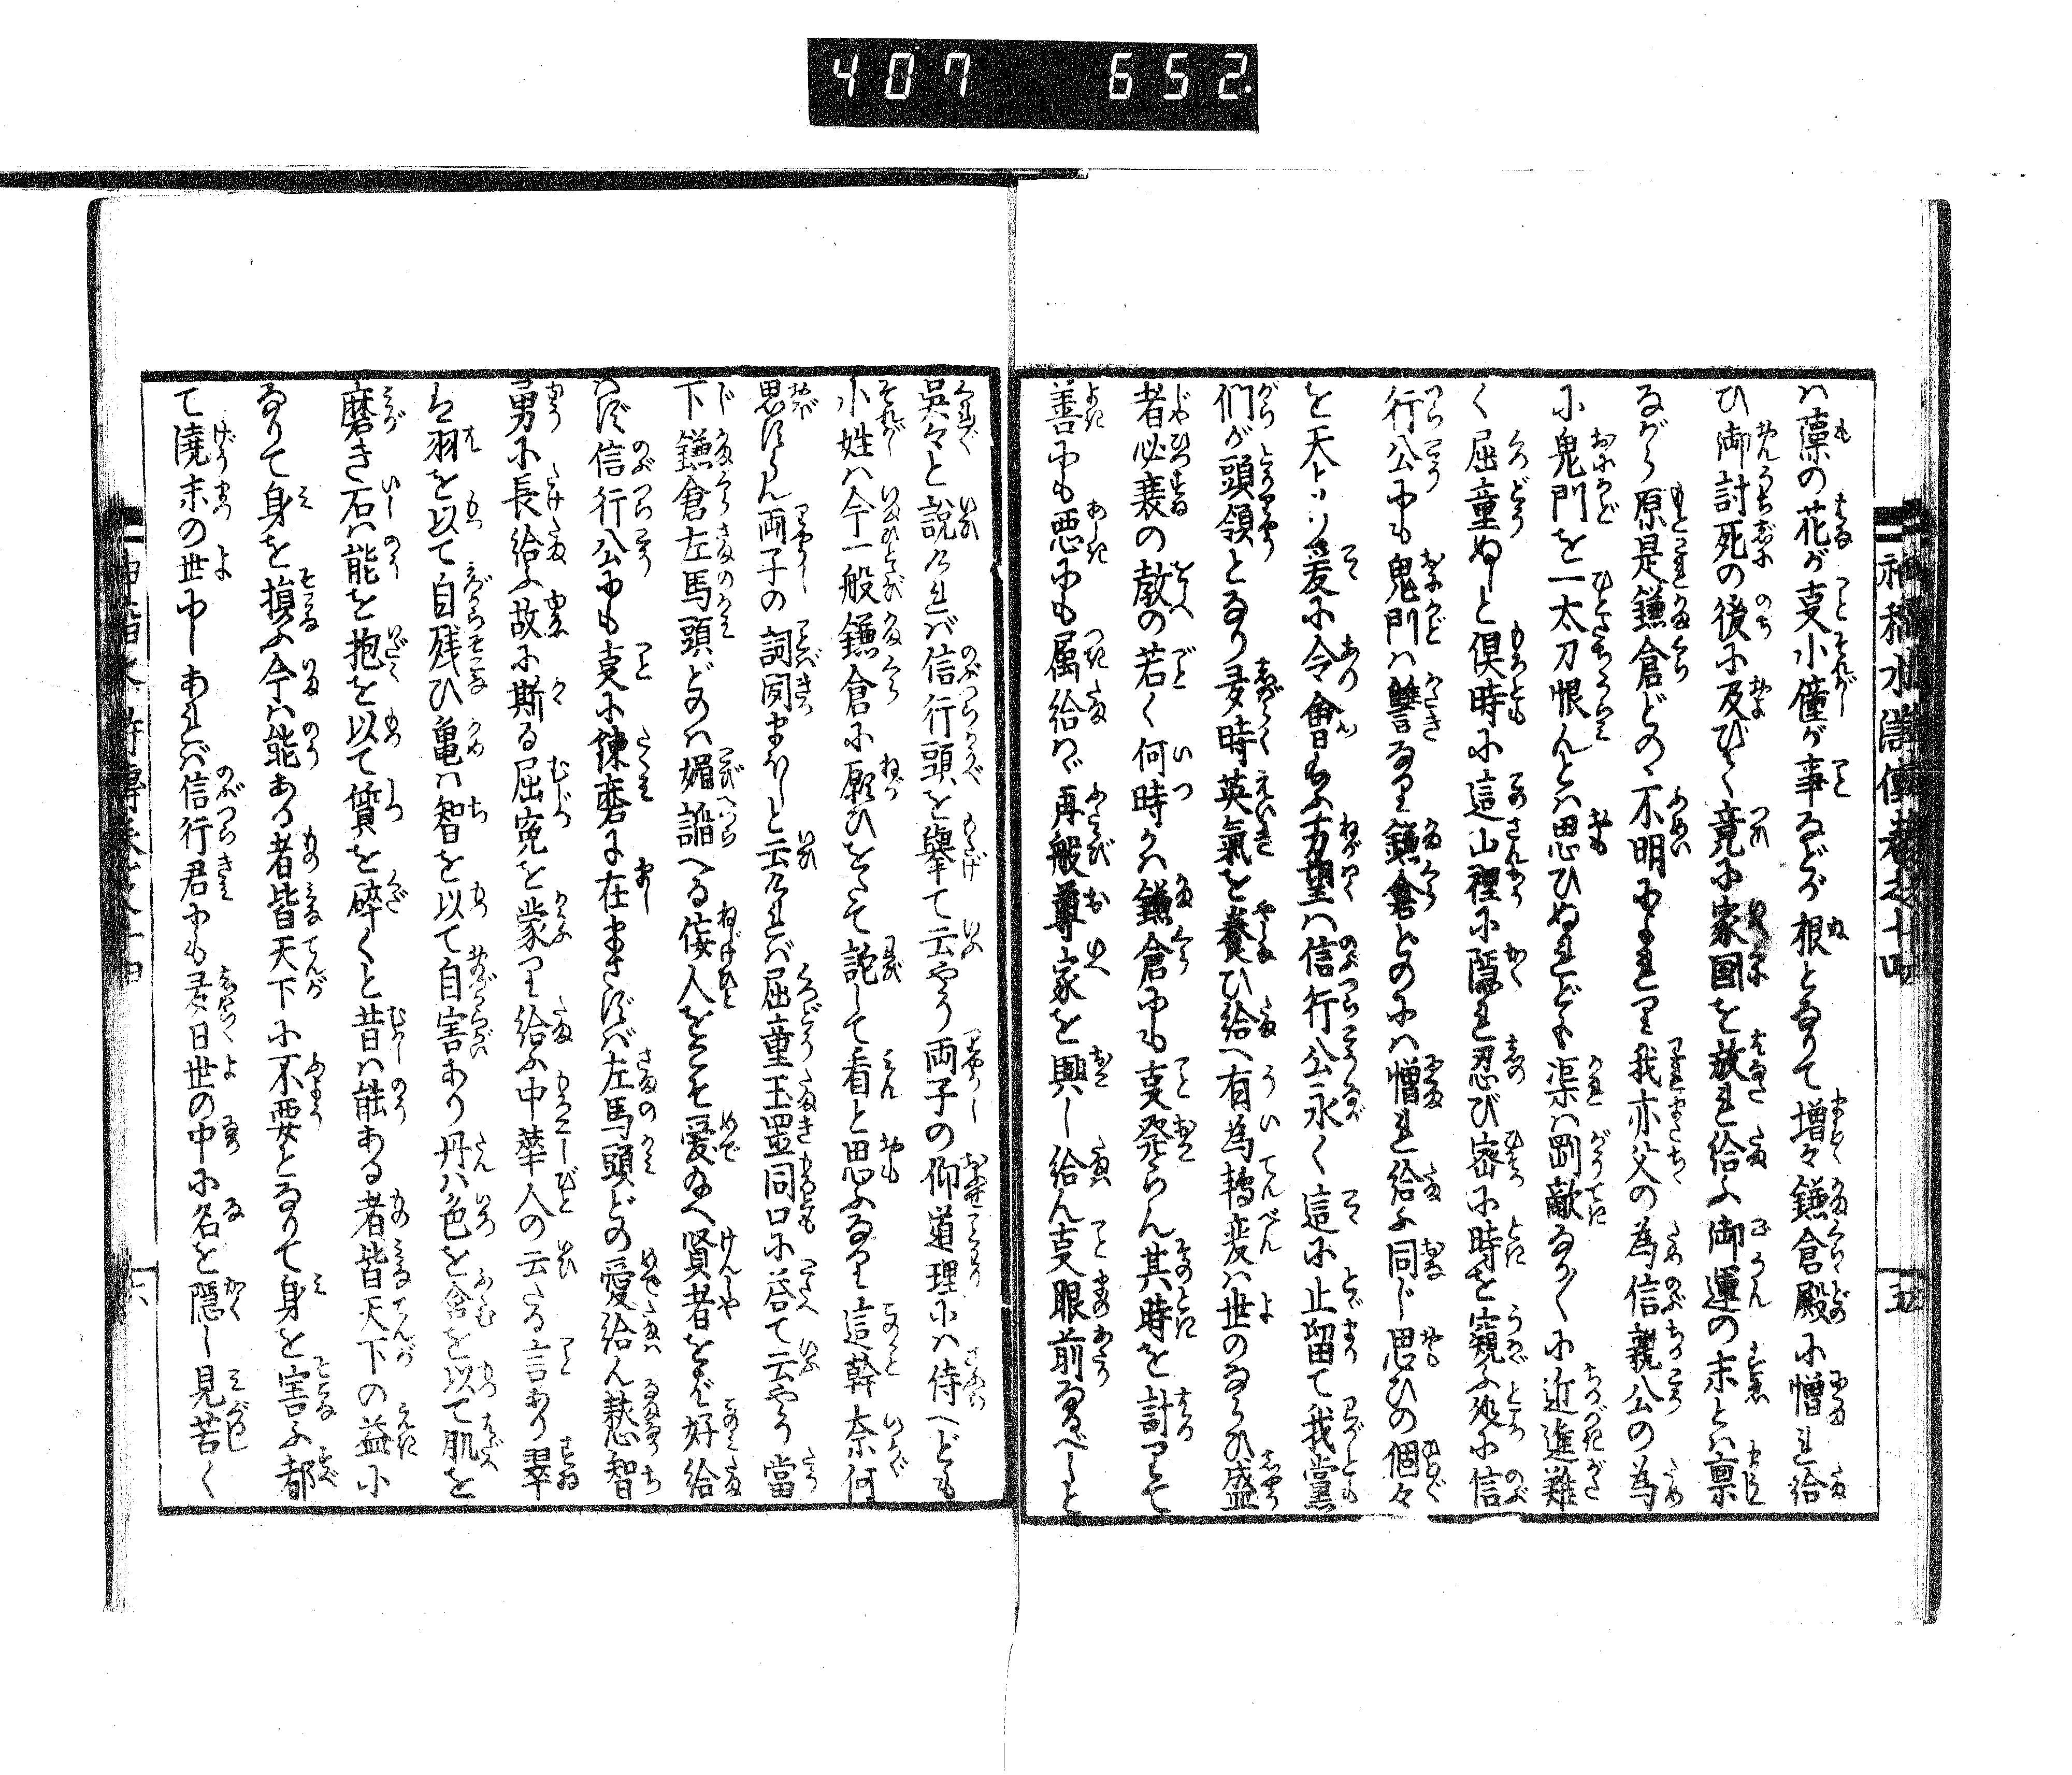 407 652
神稲水滸傳巻之十四
五
ハ藻の花が㕝小僮が事などが根となりて増々鎌倉殿に憎まれ給
ひ御討死の後に及びて竟に家国を放れ給ふ御運の末とハ禀
ながら原是鎌倉どの不明によれり我亦父の為信親公の為
に鬼門を一太刀恨んとハ思ひぬれども渠ハ剛敵なかく小近進難
く屈童ぬしと倶時に這山裡に隠れ忍び密に時を窺ふ処に信
行公にも鬼門ハ讐なり鎌倉どのにハ憎まれ給ふ同じ思ひの個々
を天より爰に令會給ふ方望ハ信行公永く這に止留て我黨
們が頭領となり多時英氣を養ひ給へ有為轉変ハ世のならひ盛
者必衰の教の若く何時かハ鎌倉にも㕝発らん其時を計りて
善にも悪にも属給はゞ再般尊家を興し給ん㕝眼前なるべしと
呉々と説けれバ信行頭を擧て云やう両子の仰道理にハ侍へども
小姓ハ今一般鎌倉に願ひをたて詑して看と思ふなり這幹奈何
思はらん両子の詞聞まほしと云けれバ屈童玉墨同口に答て云やう當
下鎌倉左馬頭どのハ媚謟へる侫人をこそ愛給へ賢者をバ好給
はず信行公にも㕝小錬磨に在まさずバ左馬頭どの愛給ん憖智
勇に長給ふ故に斯る屈寃を蒙り給ふ中華人の云たる言あり翠
ハ羽を以て自残ひ亀ハ智を以て自害あり丹ハ色を含を以て肌を
磨き石ハ能を抱を以て質を砕くと昔ハ能ある者皆天下の益に
なりて身を損ふ今ハ能ある者皆天下に不要となりて身を害ふ都
て澆末の世中しあれバ信行君にも多日世の中に名を隠し見苦く
六